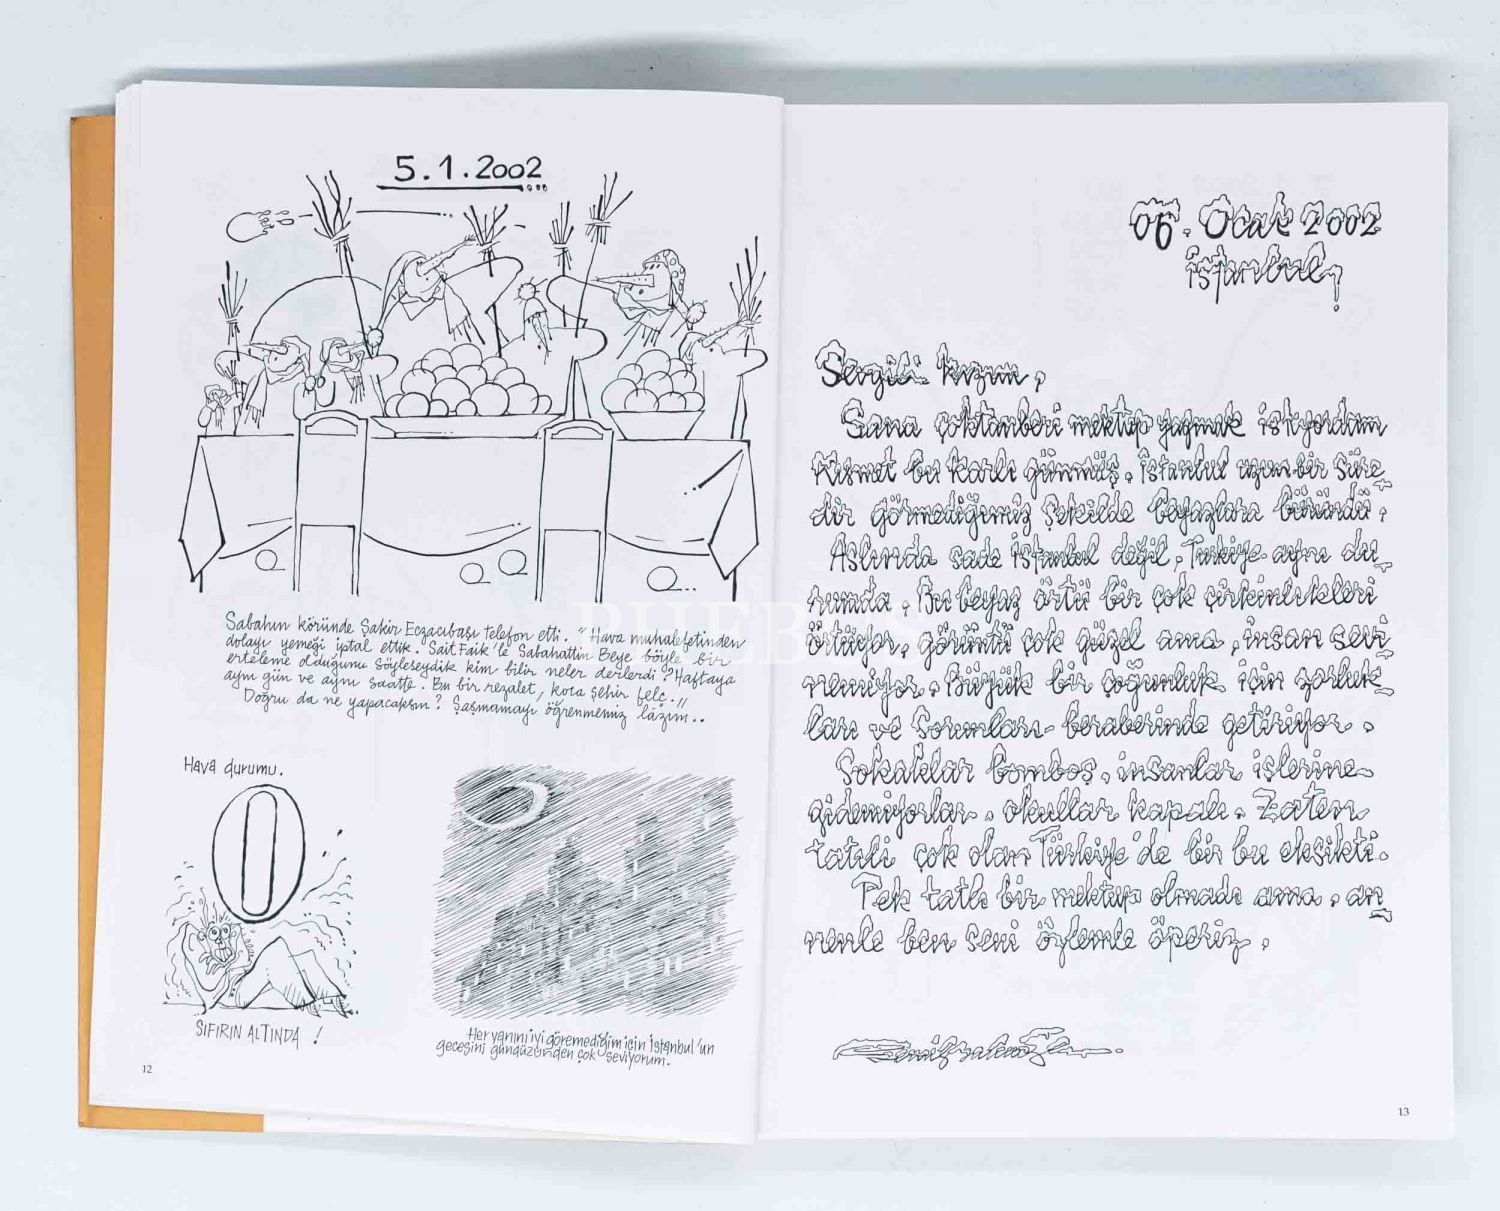 5.1.2002...
Sabahın köründe Şakir Eczacıbaşı telefon etti. "Hava muhalefetinden
dolayı yemeği iptal ettik. Sait Faik'le Sabahattin Beye böyle bir
erteleme olduğunu söyleseydik kim bilir neler derlerdi? Haftaya
aynı gün ve aynı saatte. Bu bir rezalet, koca şehir felç.."
Doğru da ne yapacaksın? Şaşmamayı öğrenmemiz lâzım..
Hava durumu.
0
SIFIRIN ALTINDA !
Her yanını iyi göremediğim için İstanbul'un
gecesini gündüzünden çok seviyorum.
12
06. Ocak 2002
İstanbul,
Sevgili kızım,
Sana çoktanberi mektup yazmak istiyordum
Kısmet bu karlı günmüş. İstanbul uzun bir süre-
dir görmediğimiz şekilde beyazlara büründü.
Aslında sade İstanbul değil, Türkiye aynı du-
rumda. Bu beyaz örtü bir çok çirkinlikleri
örtüyor, görüntü çok güzel ama, insan sevi
nemiyor. Büyük bir çoğunluk için zorluk-
ları ve sorunları beraberinde getiriyor.
Sokaklar bomboş, insanlar işlerine
gidemiyorlar, okullar kapalı. Zaten
tatili çok olan Türkiye'de bir bu eksikti.
Pek tatlı bir mektup olmadı ama, an
nenle ben seni özlemle öperiz.
13
PHEBUS